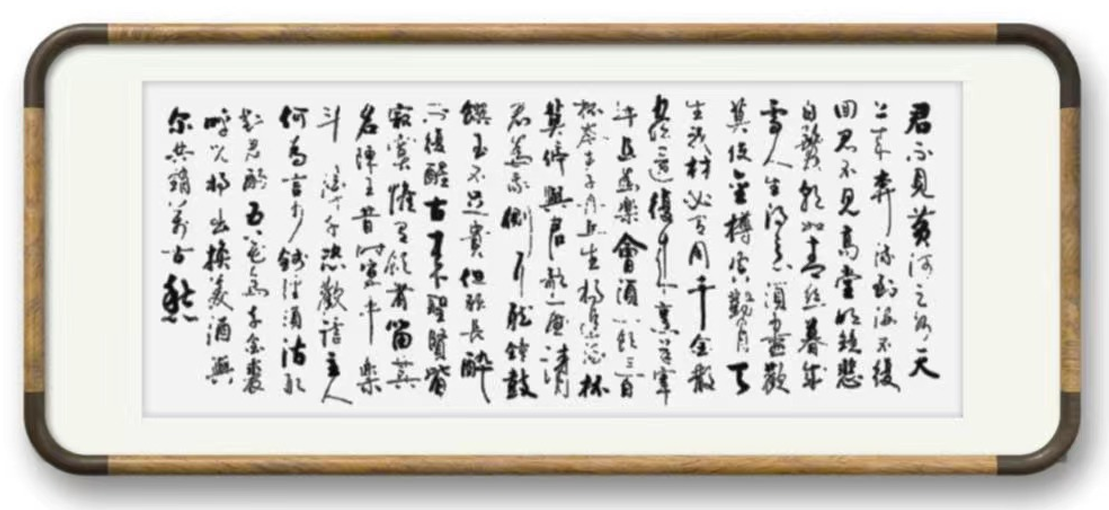 君不见黄河之水天
上来奔流到海不復
回君不见高堂明鏡悲
白髮朝如青丝暮成
雪人生得意须尽歡
莫使金樽空對月天
生我材必有用千金散
盡還復来烹羊宰
牛且為樂會須一飲三百
杯岑夫子丹丘生将進酒杯
莫停與君歌一曲請
君為我側耳聴鐘鼓
饌玉不足貴但願長醉
不復醒古来聖賢皆
寂寞惟有飲者留其
名陳王昔时宴平樂
斗酒十千恣歡謔主人
何為言少錢径须沽取
對君酌五花馬千金裘
呼兒将出换美酒與
尔共銷萬古愁